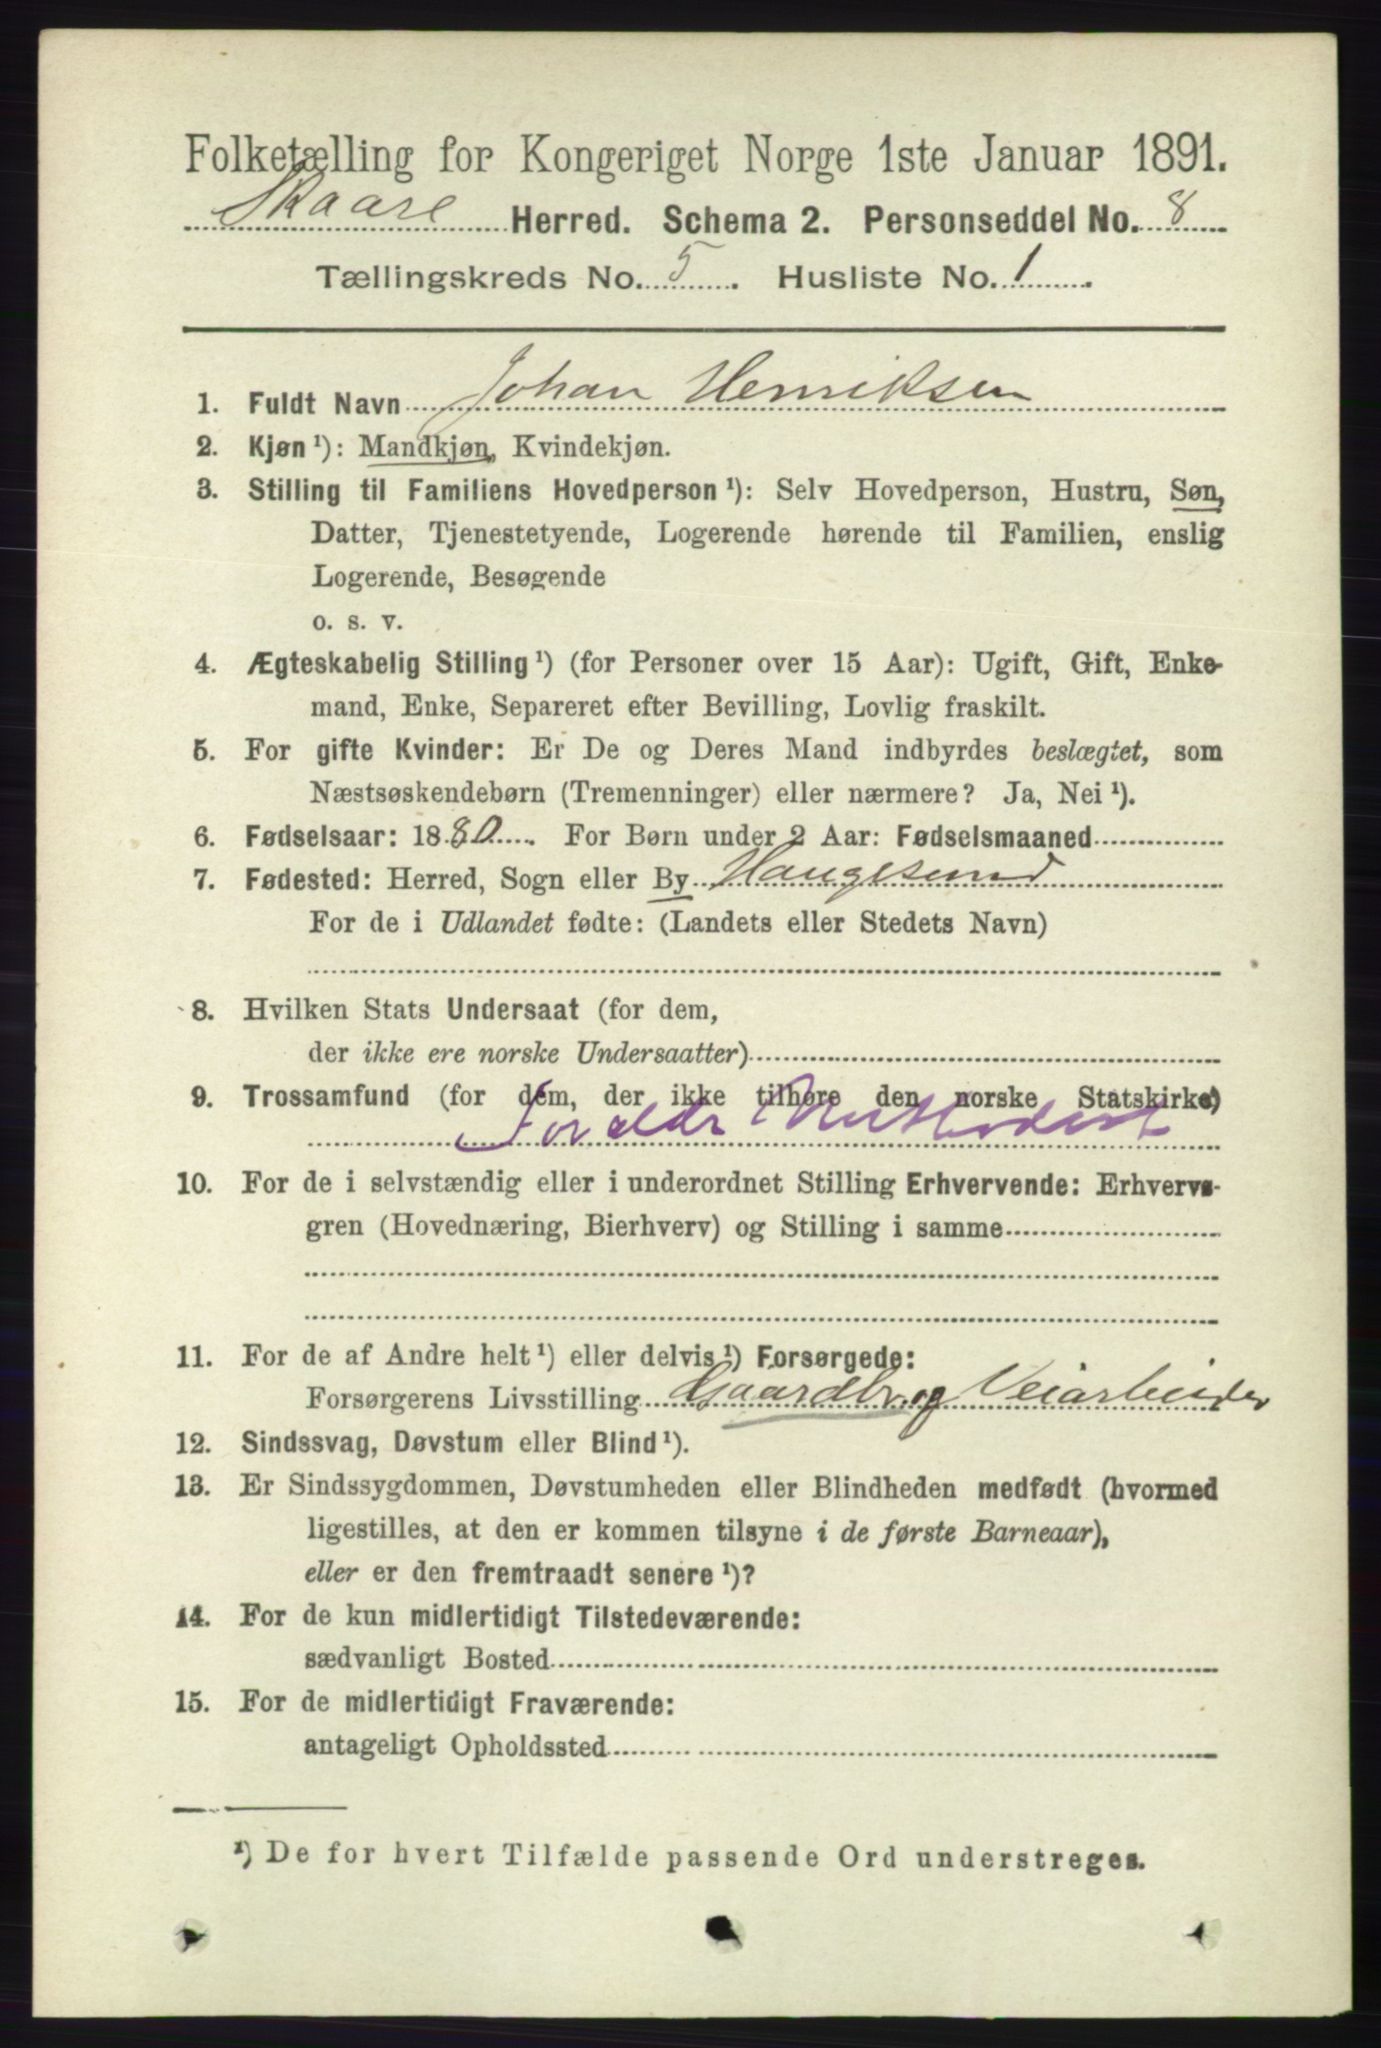 Folketælling for Kongeriget Norge 1ste Januar 1891.
Skaare Herred. Schema 2. Personseddel No. 8
Tællingskreds No. 5. Husliste No. 1.
1. Fuldt Navn Johan Henriksen
2. Kjøn ¹): Mandkjøn, Kvindekjøn.
3. Stilling til Familiens Hovedperson ¹): Selv Hovedperson, Hustru, Søn,
Datter, Tjenestetyende, Logerende hørende til Familien, enslig
Logerende, Besøgende
o. s. v.
4. Ægteskabelig Stilling ¹) (for Personer over 15 Aar): Ugift, Gift, Enke-
mand, Enke, Separeret efter Bevilling, Lovlig fraskilt.
5. For gifte Kvinder: Er De og Deres Mand indbyrdes beslægtet, som
Næstsøskendebørn (Tremenninger) eller nærmere? Ja, Nei ¹).
6. Fødselsaar: 1880. For Børn under 2 Aar: Fødselsmaaned
7. Fødested: Herred, Sogn eller By Haugesund
For de i Udlandet fødte: (Landets eller Stedets Navn)
8. Hvilken Stats Undersaat (for dem,
der ikke ere norske Undersaatter)
9. Trossamfund (for dem, der ikke tilhøre den norske Statskirke)
Foreldr Methodist
10. For de i selvstændig eller i underordnet Stilling Erhvervende: Erhvervs-
gren (Hovednæring, Bierhverv) og Stilling i samme
11. For de af Andre helt ¹) eller delvis ¹) Forsørgede:
Forsørgerens Livsstilling Gaardbr. og Veiarbeider
12. Sindssvag, Døvstum eller Blind ¹).
13. Er Sindssygdommen, Døvstumheden eller Blindheden medfødt (hvormed
ligestilles, at den er kommen tilsyne i de første Barneaar),
eller er den fremtraadt senere ¹)?
14. For de kun midlertidigt Tilstedeværende:
sædvanligt Bosted
15. For de midlertidigt Fraværende:
antageligt Opholdssted
¹) De for hvert Tilfælde passende Ord understreges.